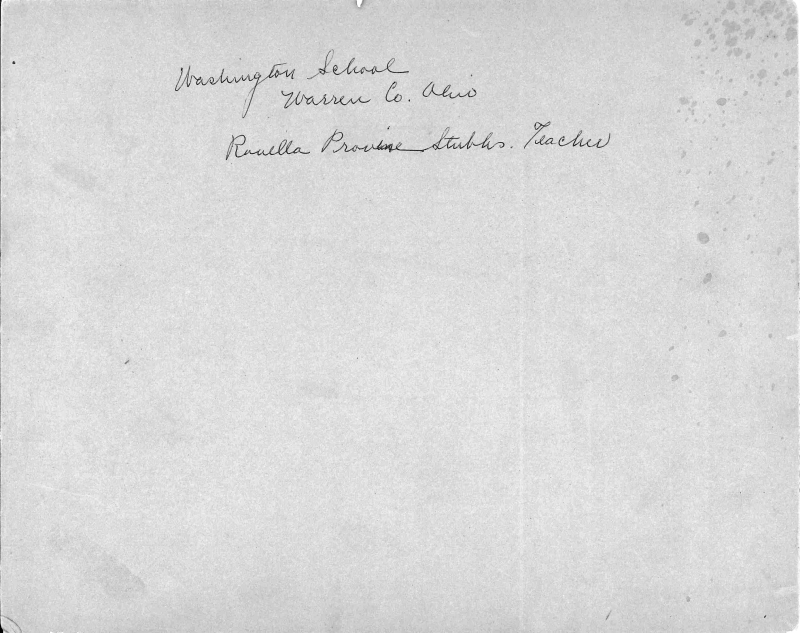 Washington School
Warren Co. Ohio
Rouella Provine Stubbs. Teacher